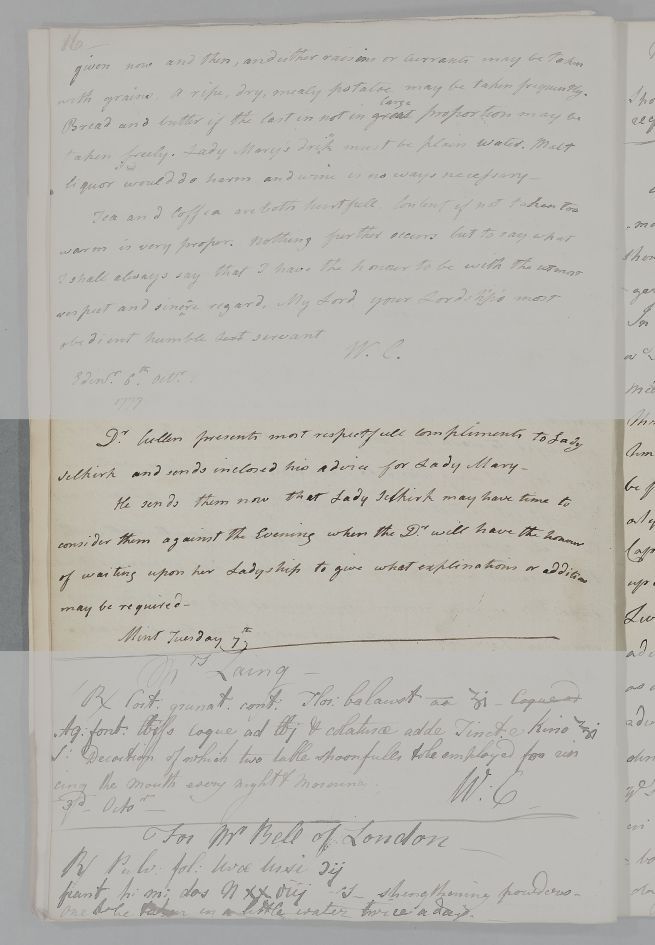 16
given now and then, and either raisins or currants may be taken
with grains. A ripe, dry, mealy potatoe may be taken frequently.
Bread and butter if the last in not in great large proportion may be
taken freely. Lady Mary's drik must be plain water. Malt
liquor would do harm and wine is no ways necessary —
Tea and Coffea are both hurtfull. if not taken too
warm is very proper. Nothing further occurs but to say what
I shall always say that I have the honour to be with the utmost
respect and sincere regard, My Lord your Lordship's most
obedient humble servant
W. C.
Edinr. 6th Octr.
1777
Dr Cullen presents most respectfull compliments to Lady
Selkirk and sends inclosed his advice for Lady Mary —
He sends them now that Lady Selkirk may have time to
consider them against the Evening when the Dr will have the honour
of waiting upon her Ladyship to give what explinations or addition
may be required —
Mint Tuesday 7th
Mrs Laing —
℞ Cort: granat: cont: Flor: balaust aa ʒj — Coque ad
Aq: font: lbifs coque ad lbj & colaturæ adde Tinct: e Kino
S: Decoction of which two table spoonfulls to be employed for rin
cing the mouth every night & morning.
3rd Octor —
W. C
For Mr Bell of London
℞ Pulv: fol: Uvæ Ursi
fiant dos N xx — S — strengthening powders —
One to be taken in a little water twice a day.